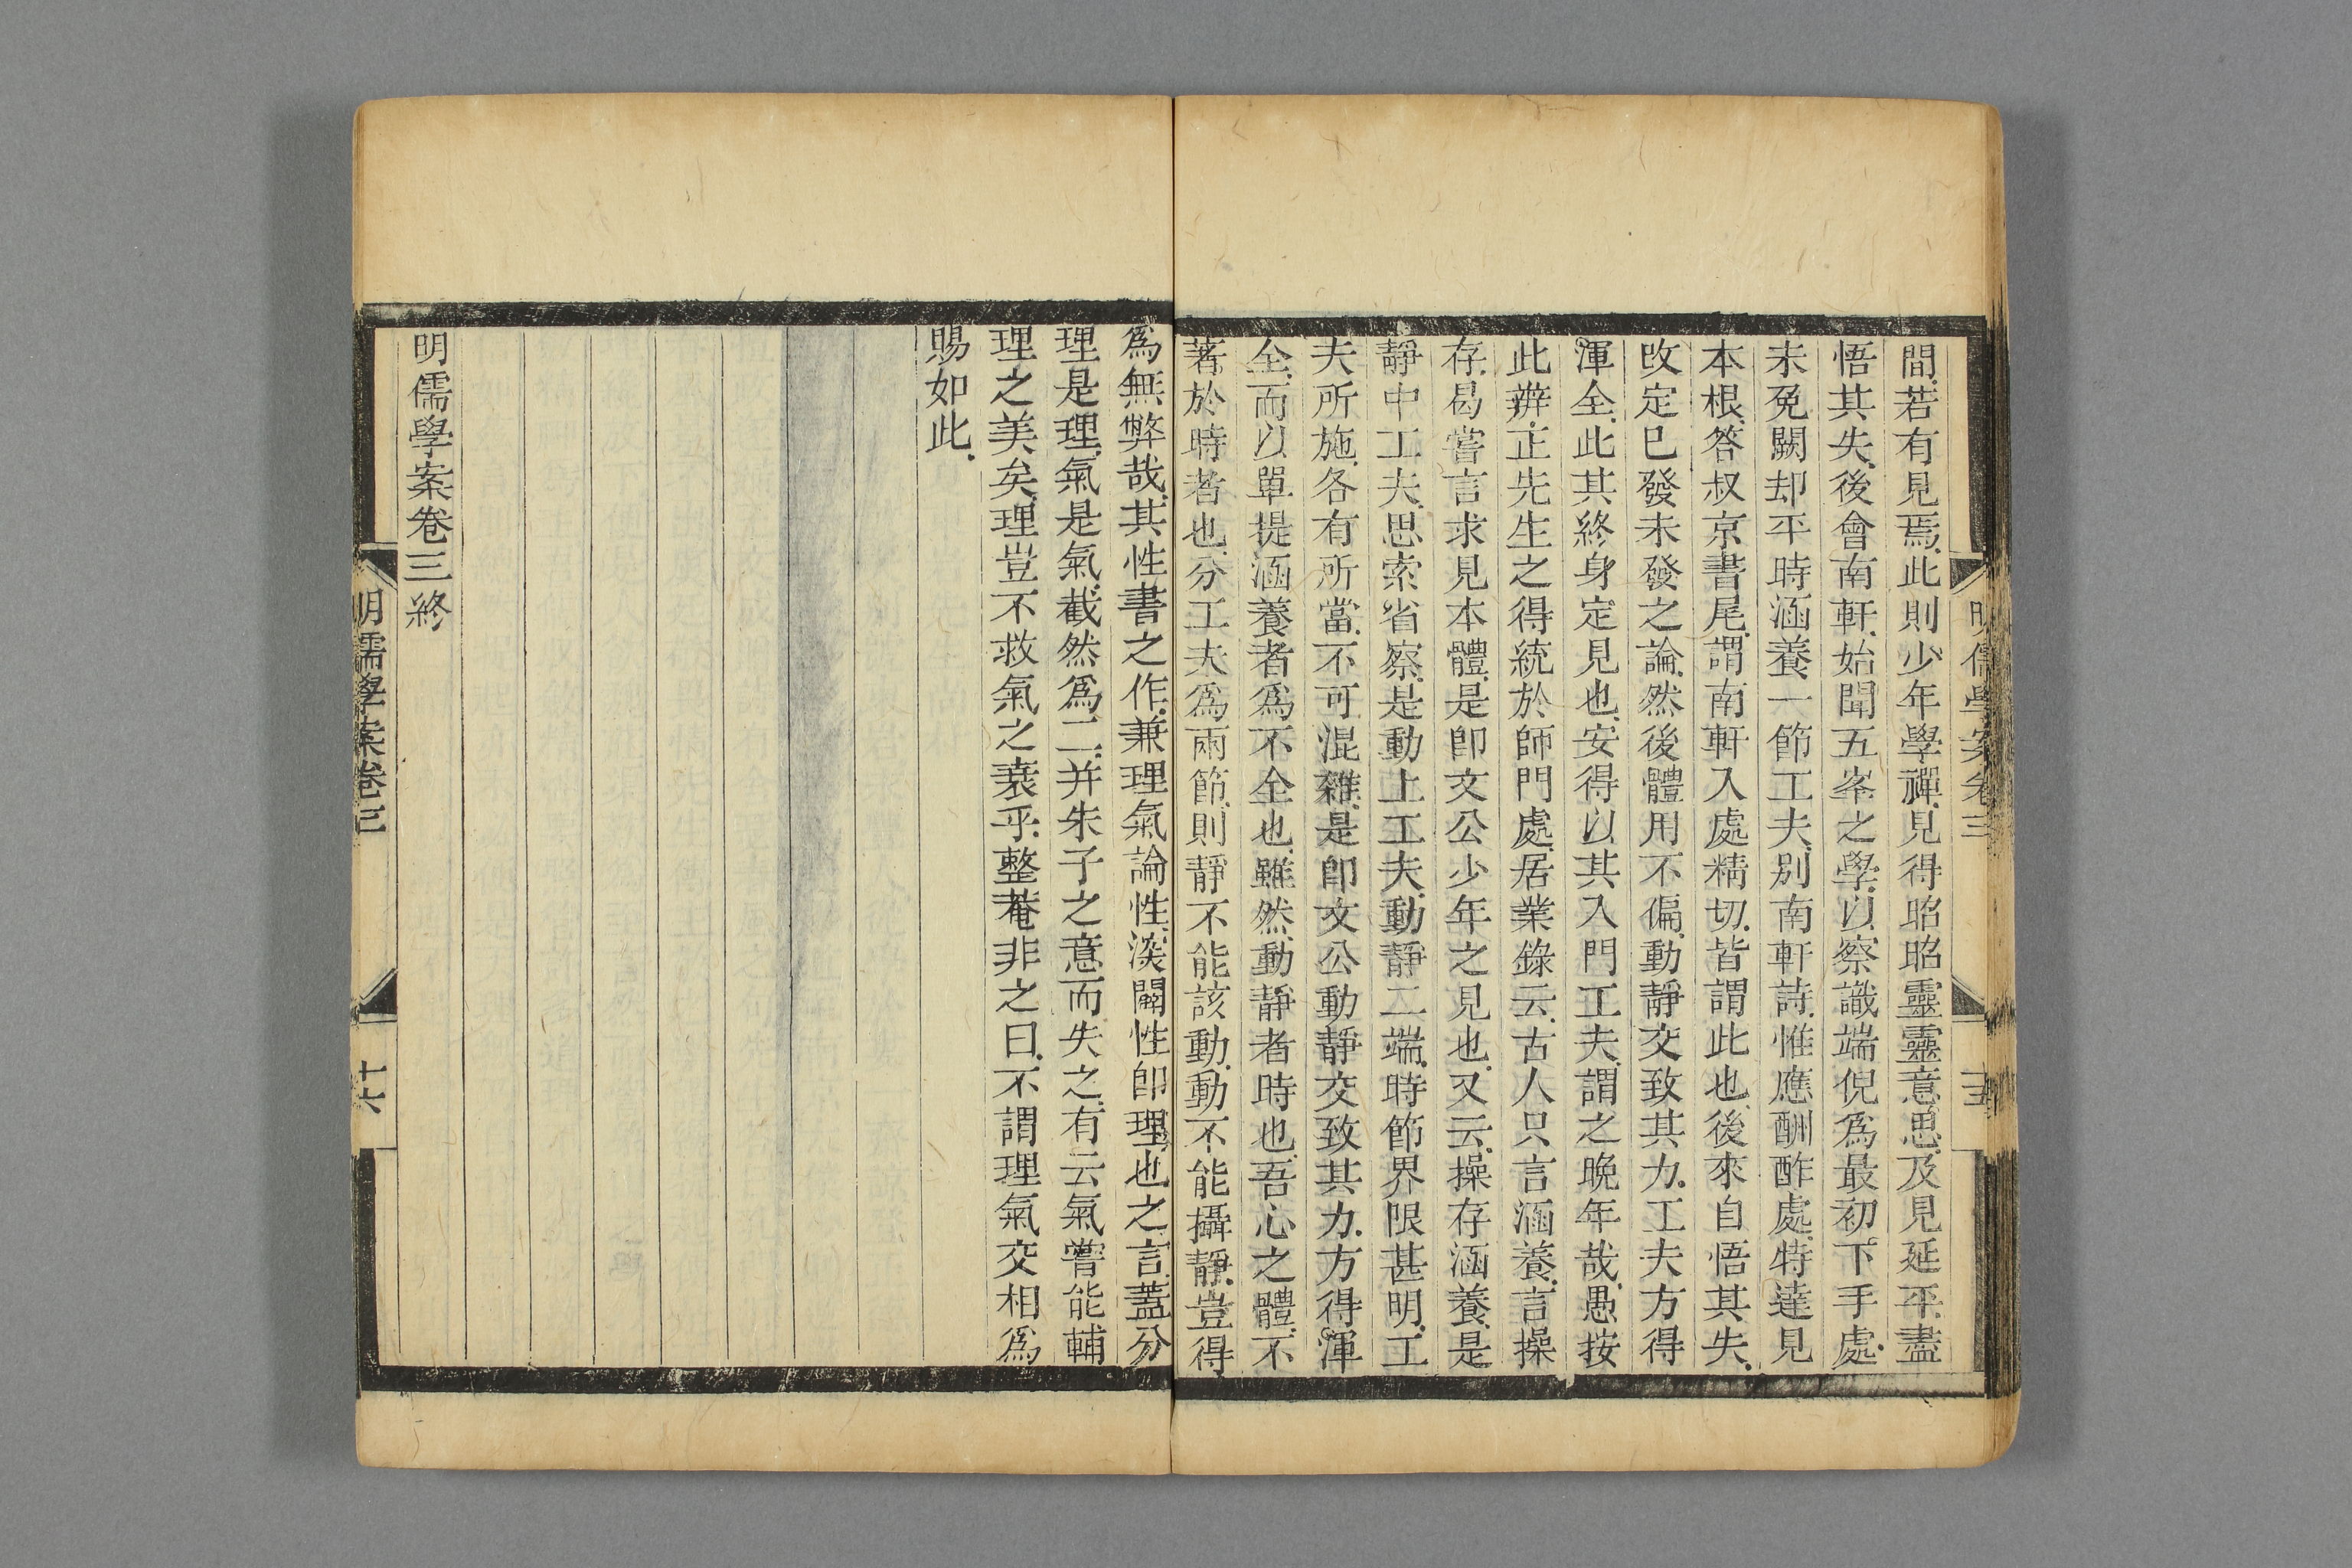 明儒學案卷三
間.若有見焉.此則少年學禪.見得昭昭靈靈意思.及見延平.盡
悟其失.後會南軒.始聞五峯之學.以察識端倪爲最初下手處.
未免闕却平時涵養一節工夫.別南軒詩.惟應酬酢處.特達見
本根.答叔京書尾.謂南軒入處精切.皆謂此也.後來自悟其失.
改定已發未發之論.然後體用不偏.動靜交致其力.工夫方得
渾全.此其終身定見也.安得以其入門工夫.謂之晚年哉.愚按
此辨.正先生之得統於師門處.居業錄云.古人只言涵養.言操
存.曷嘗言求見本體.是卽文公少年之見也.又云.操存涵養.是
靜中工夫.思索省察.是動上工夫.動靜二端.時節界限甚明.工
夫所施.各有所當.不可混雜.是卽文公動靜交致其力.方得渾
全.而以單提涵養者爲不全也.雖然.動靜者時也.吾心之體.不
著於時者也.分工夫爲兩節.則靜不能該動.動不能攝靜.豈得
爲無弊哉.其性書之作.兼理氣論性.深闢性卽理也之言.蓋分
理是理.氣是氣.截然爲二.并朱子之意而失之.有云氣嘗能輔
理之美矣.理豈不救氣之衰乎.整菴非之曰.不謂理氣交相爲
賜如此.
明儒學案卷三終
明儒學案卷三
十六